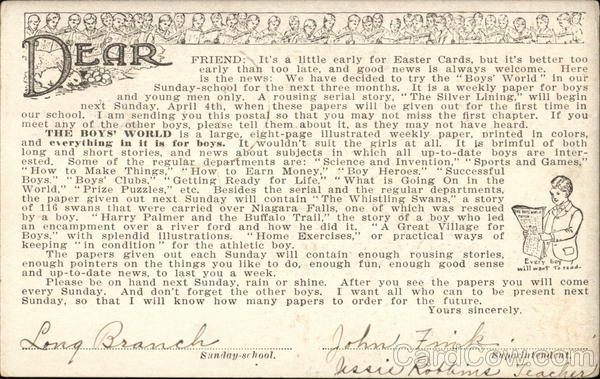 DEAR
FRIEND: It's a little early for Easter Cards, but it's better too
early than too late, and good news is always welcome. Here
is the news: We have decided to try the "Boys' World" in our
Sunday-school for the next three months. It is a weekly paper for boys
and young men only. A rousing serial story, "The Silver Lining," will begin
next Sunday, April 4th, when these papers will be given out for the first time in
our school. I am sending you this postal so that you may not miss the first chapter. If you
meet any of the other boys, please tell them about it, as they may not have heard.
THE BOYS' WORLD is a large, eight-page illustrated weekly paper, printed in colors,
and everything in it is for boys. It wouldn't suit the girls at all. It is brimful of both
long and short stories, and news about subjects in which all up-to-date boys are inter-
ested. Some of the regular departments are: "Science and Invention," "Sports and Games,"
"How to Make Things," "How to Earn Money," "Boy Heroes," "Successful
Boys," "Boys' Clubs," "Getting Ready for Life," "What is Going On in the
World," "Prize Puzzles," etc. Besides the serial and the regular departments,
the paper given out next Sunday will contain "The Whistling Swans," a story
of 116 swans that were carried over Niagara Falls, one of which was rescued
by a boy. "Harry Palmer and the Buffalo Trail," the story of a boy who led
an encampment over a river ford and how he did it. "A Great Village for
Boys," with splendid illustrations. "Home Exercises," or practical ways of
keeping "in condition" for the athletic boy.
Every boy
will want to read.
The papers given out each Sunday will contain enough rousing stories,
enough pointers on the things you like to do, enough fun, enough good sense
and up-to-date news, to last you a week.
Please be on hand next Sunday, rain or shine. After you see the papers you will come
every Sunday. And don't forget the other boys. I want all who can to be present next
Sunday, so that I will know how many papers to order for the future.
Yours sincerely,
Long Branch John Fink
Sunday-school. Superintendent.
Jessie Robbins Teacher
CardCow.com